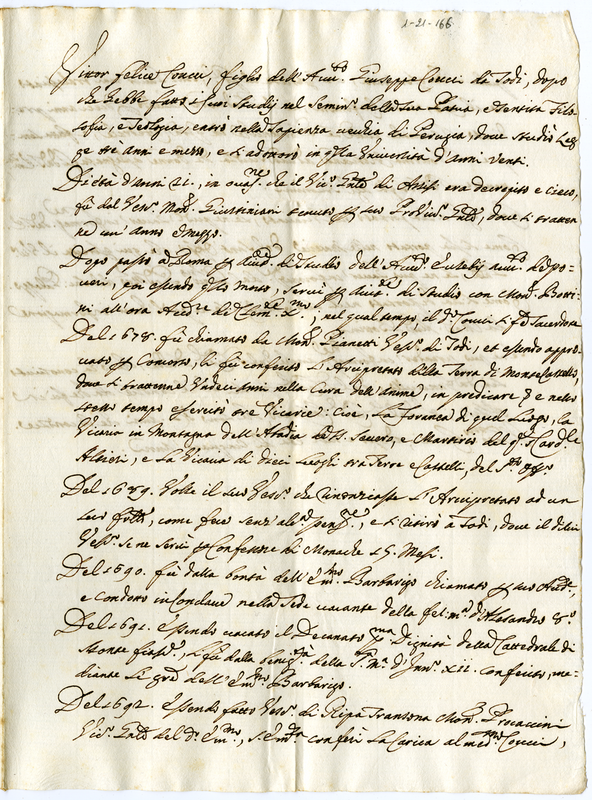 1-21-166
Vittor felice Coucci, figlio dell' Auu.to Giuseppe Coucci da Todi, dopo
che hebbe fatto i suoi Studij nel Semin.o della sua Patria, e sentita Filo-
sofia, e Teologia, entrò nella Sapienza vecchia di Perugia, doue studiò Leg-
ge trè anni e mezzo, e si adottorò in q.lla Vniuersità d'Anni Venti.
D'età d'Anni 21., in occa.ne che il Vic.o Gnle di Assisi era decrepito e cieco,
fù dal Vesc.o Mon. Giustiniani tenuto p suo Prouic.o Gnle, doue si tratten-
ne un' anno e mezzo.
Dopo passò à Roma p Aiut.e di studio dell' Auu.to Eusebij auu.to de po-
ueri, poi essendo q.llo morto, seruì p aiut.e di Studio con Mon. Bottini
all'ora Aud.re di ; nel qual tempo, il d.o Coucci si fè Sacerdote
Del 1678. fù chiamato da Mon. Pianetti Vesc.o di Todi, et essendo appro-
uato p Concorso, li fù conferito l'Arcipretato della Terra di Monte Castello,
doue si trattenne Vndeci Anni nella Cura dell'Anime, in predicare & e nello
stesso tempo esercitò tre Vicarie: cioè, La foranea di quel Luogo, la
Vicaria in Montagna dell' Abadia de SS. , e Martirio del q. Card.le
Altieri, e La Vicaria di dieci Luoghi tra Terre e Castelli, del
Del 1689. Volle il suo Vesc.o che rinonziasse l'Arcipretato ad un
suo frllo, come fece senz' alc.a pens.ne, e si ritirò a Todi, doue il detto
Vesc.o se ne seruì p Confessore di Monache 15. Mesi.
Del 1690. fù dalla bontà dell' Em.mo Barbarigo chiamato p suo Aud.re,
e condotto in Conclaue nella Sede uacante della fel: m.a d'Alesandro 8.o
Del 1691. essendo uacato il Decanato p.ma Dignità della Cattedrale di
Monte fiasc.e, li fù dalla benig.tà della S. M.a d'Inn.o XII. conferito, me-
diante le gre dell' Em.mo Barbarigo.
Del 1692. essendo fatto Vesc.o di Ripa Transona Mon. Procaccini
Vic.o Gnle del d.o Em.mo, S. Em.za conferì La Carica al med.mo Coucci,